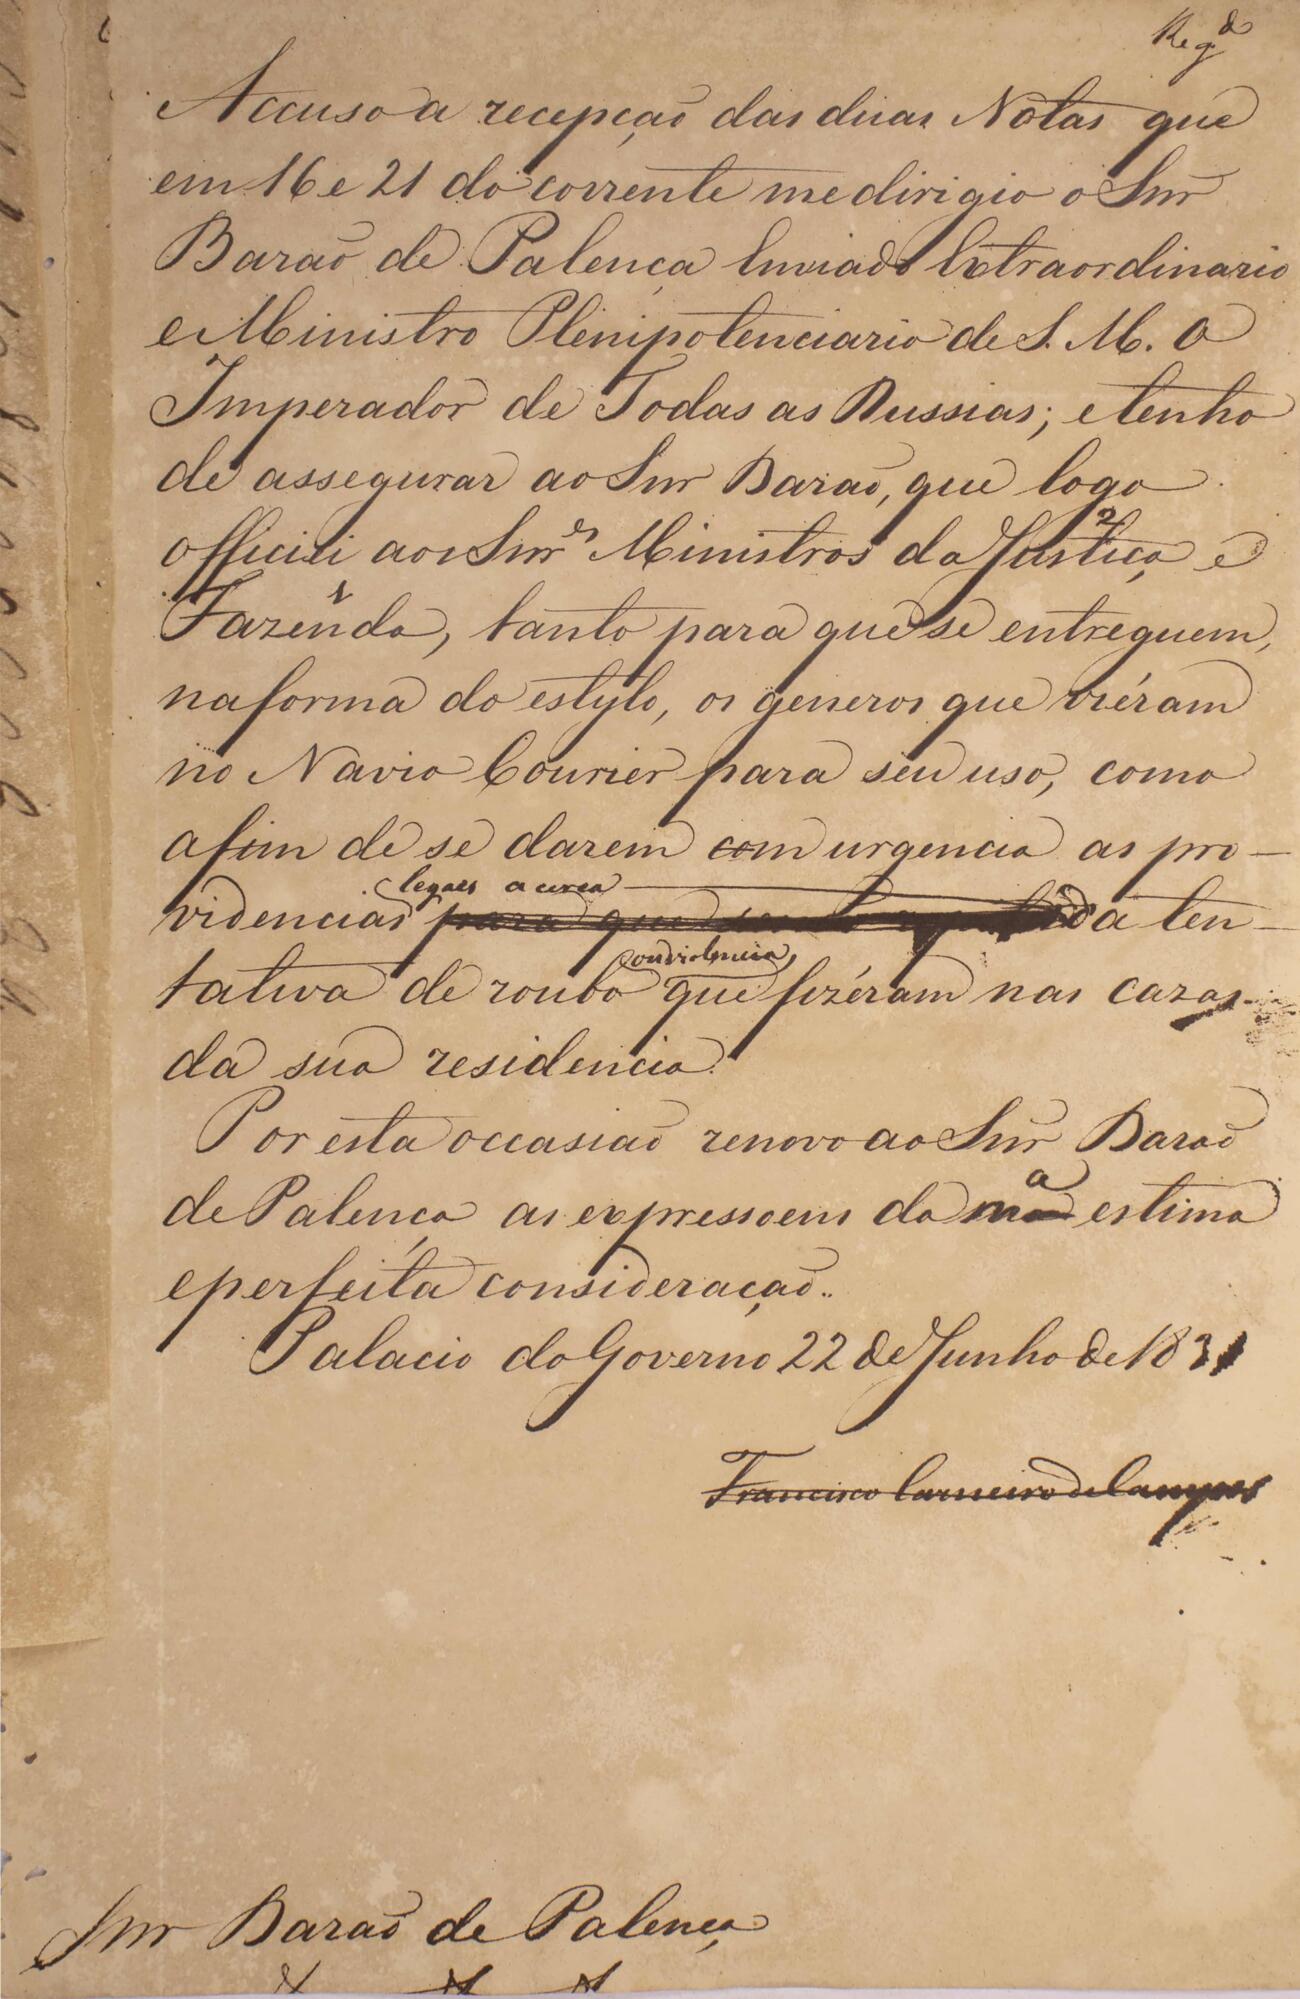 Reg.do
Accuso a recepção das duas Notas que
em 16 e 21 do corrente me dirigio o Snr
Barão de Palença Enviado Extraordinario
e Ministro Plenipotenciario de S. M. O
Imperador de Todas as Russias; e tenho
de assegurar ao Snr Barão, que logo
officiei aos Snr.es Ministros da Justiça 2 e
Fazenda 1, tanto para que se entreguem,
na forma do estylo, os generos que viéram
no Navio Courier para seu uso, como
afim de se darem com urgencia as pro-
legaes acerca
videncias para que da ten-
com violencia,
tativa de roubo que fizéram nas cazas
da sua residencia.
Por esta occasião renovo ao Snr Barão
a
de Palença as expressoens da estima
e perfeita consideração.
Palacio do Governo 22 de Junho de 1831
Francisco Carneiro de Campos
Snr Barão de Palença